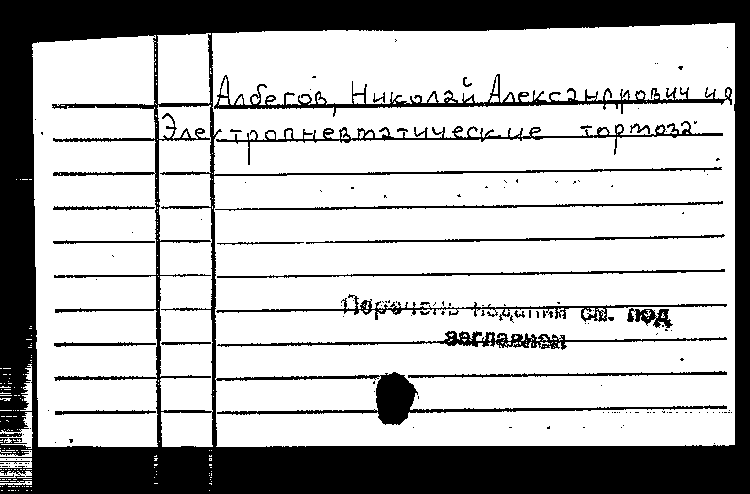 Албегов, Николай Александрович и я
Электропневматические тормоза.
Перечень изданий см. под
заглавием